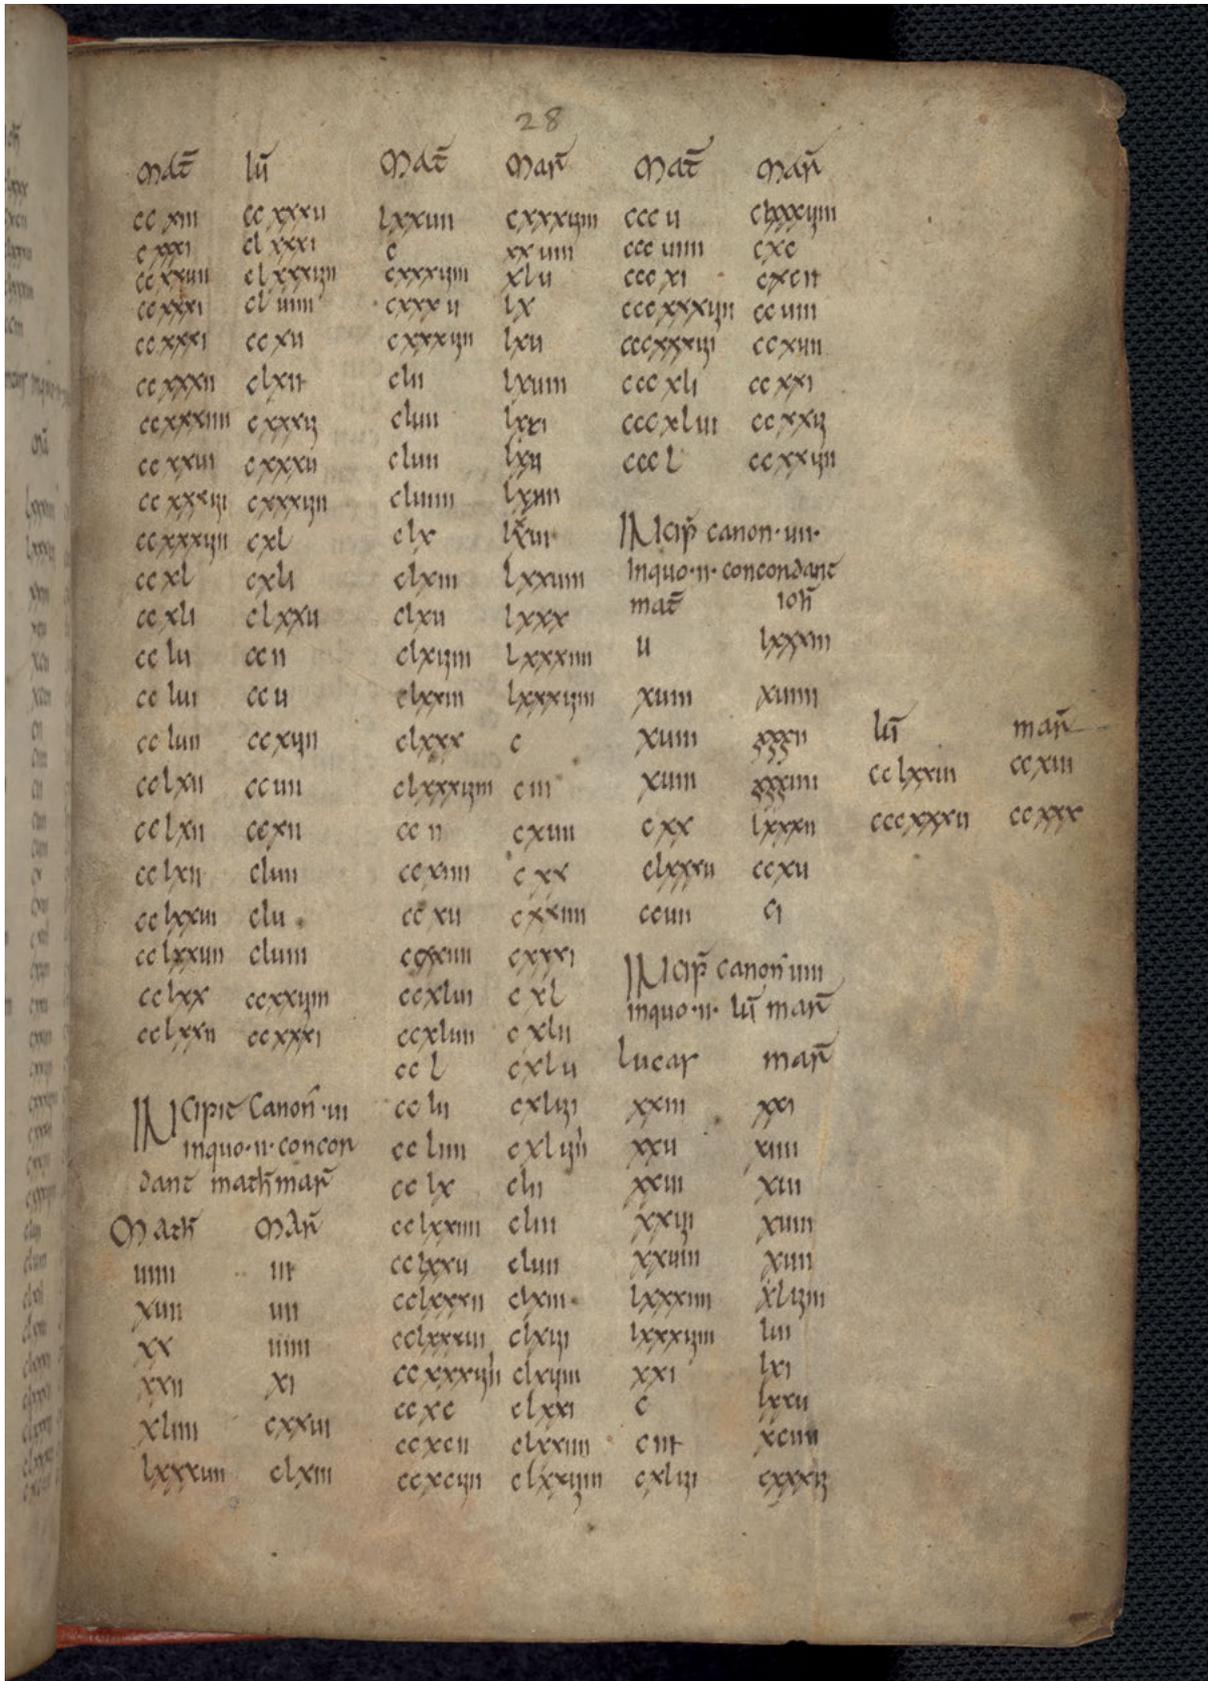 28
mat̄ lū
cc xiii cc xxxu
c xxxi cl xxxi
ccxxuii clxxxuii
ccxxxi cl uiiii
ccxxxi ccxu
ccxxxii clxii
ccxxxiiii cxxxu
ccxxxuii cxxxuii
ccxxxuiii cxl
ccxl cxli
ccxli clxxu
cc lu cc ii
cc lui cc u
cc luii ccxuii
cclxii ccuii
cclxii ccxii
cclxii cluii
cclxxiii clu
cclxxuii cluiii
cclxx ccxxuiii
cclxxii ccxxxi
INcipit Canon̄ ·ui
inquo·ii·concor
dant math̄ mar̄
Math̄ Mar̄
uiiii iii
xuii uii
xx uiiii
xxii xi
xliiii cxxui
lxxxuii clxiii
Mat̄ Mar̄
lxxuii cxxxuiii
c xxuiii
cxxxuiii xlu
cxxxu lx
cxxxuii lxu
clii lxuiii
cluii lxxi
cluii lxxii
cluiiii lxxiii
clxiii lxxuiii
clxu lxxx
clxuiii lxxxiiii
clxxiii lxxxuiii
clxxx c
clxxxuiii ciii
cc ii cxiiii
ccxiiii cxx
ccxu cxxiiii
ccxliii cxl
ccxluii cxlii
cc l cxlu
cc lii cxlui
cc liiii cxluii
cc lx clii
cclxxiiii cliii
cclxxu cluii
cclxxxii clxiii
cclxxxiii clxui
ccxc clxxi
ccxcii clxxiiii
ccxcuii clxxuiii
Mat̄ Mar̄
ccc u clxxxuiii
ccc uiiii cxc
ccc xi cxcii
cccxxxuii ccuiii
cccxxxui ccxuii
cccxli ccxxi
cccxliii ccxxii
ccc l ccxxuii
INcip̄ canon·uii·
Inquo·ii·concordant
mat̄ ioh̄
u lxxxiii
xuiiii xuiiii
xuiiii xxxii
xuiiii xxxiiii
cxx lxxxii
clxxxu ccxu
ccuii ci
INcip̄ canon̄ uiii
inquo·ii· lū mar̄
lucas mar̄
xxiii xxi
xxu xiiii
xxiii xiii
xxui xuiii
xxuiii xuii
lxxxiiii xluiii
lxxxuiii lui
xxi lxi
c lxxu
ciii xcuii
cxlui cxxxu
lū mar̄
cclxxiiii ccxiii
cccxxxu ccxxx